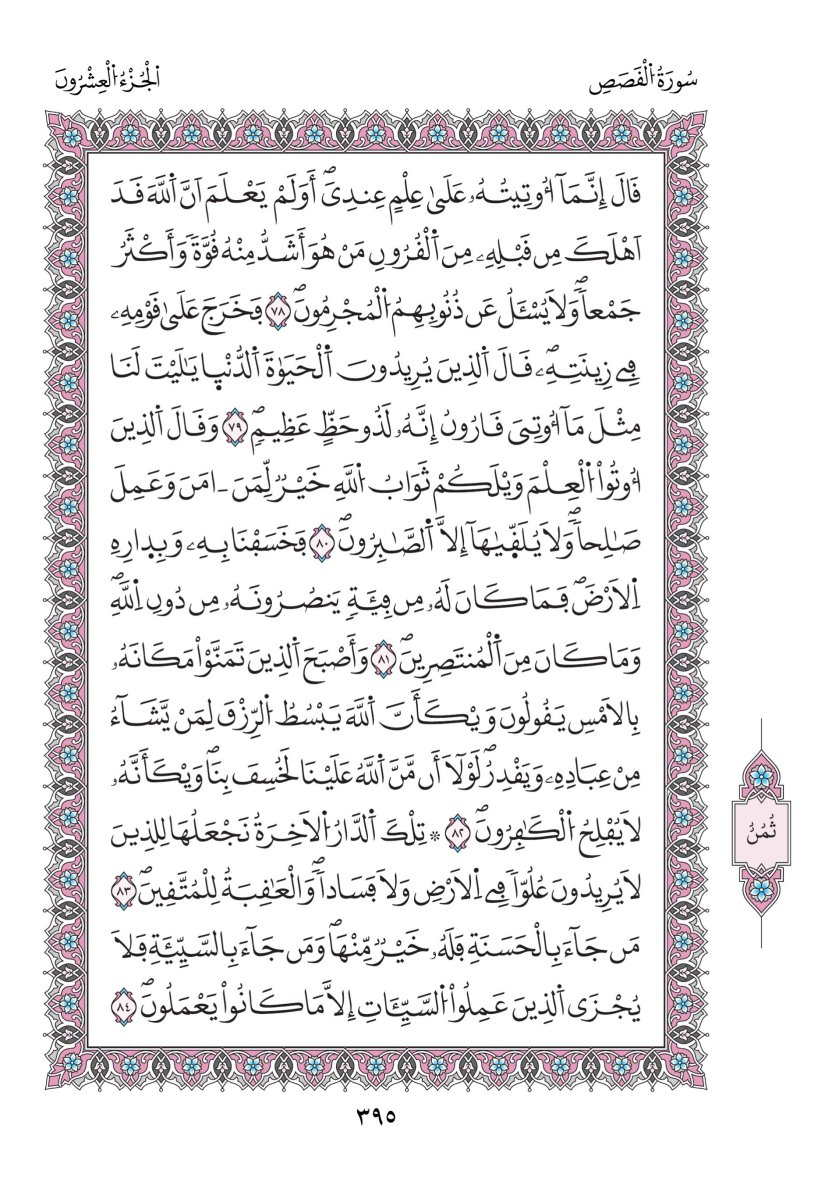 سُورَةُ اُ۬لْقَصَصِ
اُ۬لْجُزْءُ اُ۬لْعِشْرُونَ
قَالَ إِنَّمَآ أُوتِيتُهُۥ عَلَىٰ عِلْمٍ عِندِيٓۖ أَوَلَمْ يَعْلَمَ اَنَّ اَ۬للَّهَ قَدَ
اَهْلَكَ مِن قَبْلِهِۦ مِنَ اَ۬لْقُرُونِ مَنْ هُوَ أَشَدُّ مِنْهُ قُوَّةٗ وَأَكْثَرُ
جَمْعاٗۖ وَلَا يُسْـَٔلُ عَن ذُنُوبِهِمُ اُ۬لْمُجْرِمُونَۖ ٧٨ فَخَرَجَ عَلَىٰ قَوْمِهِۦ
فِے زِينَتِهِۦۖ قَالَ اَ۬لذِينَ يُرِيدُونَ اَ۬لْحَيَوٰةَ اَ۬لدُّنْي۪ا يَٰلَيْتَ لَنَا
مِثْلَ مَآ أُوتِيَ قَٰرُونُ إِنَّهُۥ لَذُو حَظٍّ عَظِيمٖۖ ٧٩ وَقَالَ اَ۬لذِينَ
أُوتُواْ اُ۬لْعِلْمَ وَيْلَكُمْ ثَوَابُ اُ۬للَّهِ خَيْرٞ لِّمَنَ اٰمَنَ وَعَمِلَ
صَٰلِحاٗۖ وَلَا يُلَقّ۪يٰهَآ إِلَّا اَ۬لصَّٰبِرُونَۖ ٨٠ فَخَسَفْنَا بِهِۦ وَبِد۪ارِهِ
اِ۬لَارْضَۖ فَمَا كَانَ لَهُۥ مِن فِئَةٖ يَنصُرُونَهُۥ مِن دُونِ اِ۬للَّهِۖ
وَمَا كَانَ مِنَ اَ۬لْمُنتَصِرِينَۖ ٨١ وَأَصْبَحَ اَ۬لذِينَ تَمَنَّوْاْ مَكَانَهُۥ
بِالَامْسِ يَقُولُونَ وَيْكَأَنَّ اَ۬للَّهَ يَبْسُطُ اُ۬لرِّزْقَ لِمَنْ يَّشَآءُ
مِنْ عِبَادِهِۦ وَيَقْدِرُۖ لَوْلَآ أَن مَّنَّ اَ۬للَّهُ عَلَيْنَا لَخُسِفَ بِنَاۖ وَيْكَأَنَّهُۥ
لَا يُفْلِحُ اُ۬لْكَٰفِرُونَۖ ٨٢ ۞ تِلْكَ اَ۬لدَّارُ اُ۬لَاخِرَةُ نَجْعَلُهَا لِلذِينَ
لَا يُرِيدُونَ عُلُوّاٗ فِے اِ۬لَارْضِ وَلَا فَسَاداٗۖ وَالْعَٰقِبَةُ لِلْمُتَّقِينَۖ ٨٣
مَن جَآءَ بِالْحَسَنَةِ فَلَهُۥ خَيْرٞ مِّنْهَاۖ وَمَن جَآءَ بِالسَّيِّئَةِ فَلَا
يُجْزَى اَ۬لذِينَ عَمِلُواْ اُ۬لسَّيِّـَٔاتِ إِلَّا مَا كَانُواْ يَعْمَلُونَۖ ٨٤
ثُمُنُ
٣٩٥